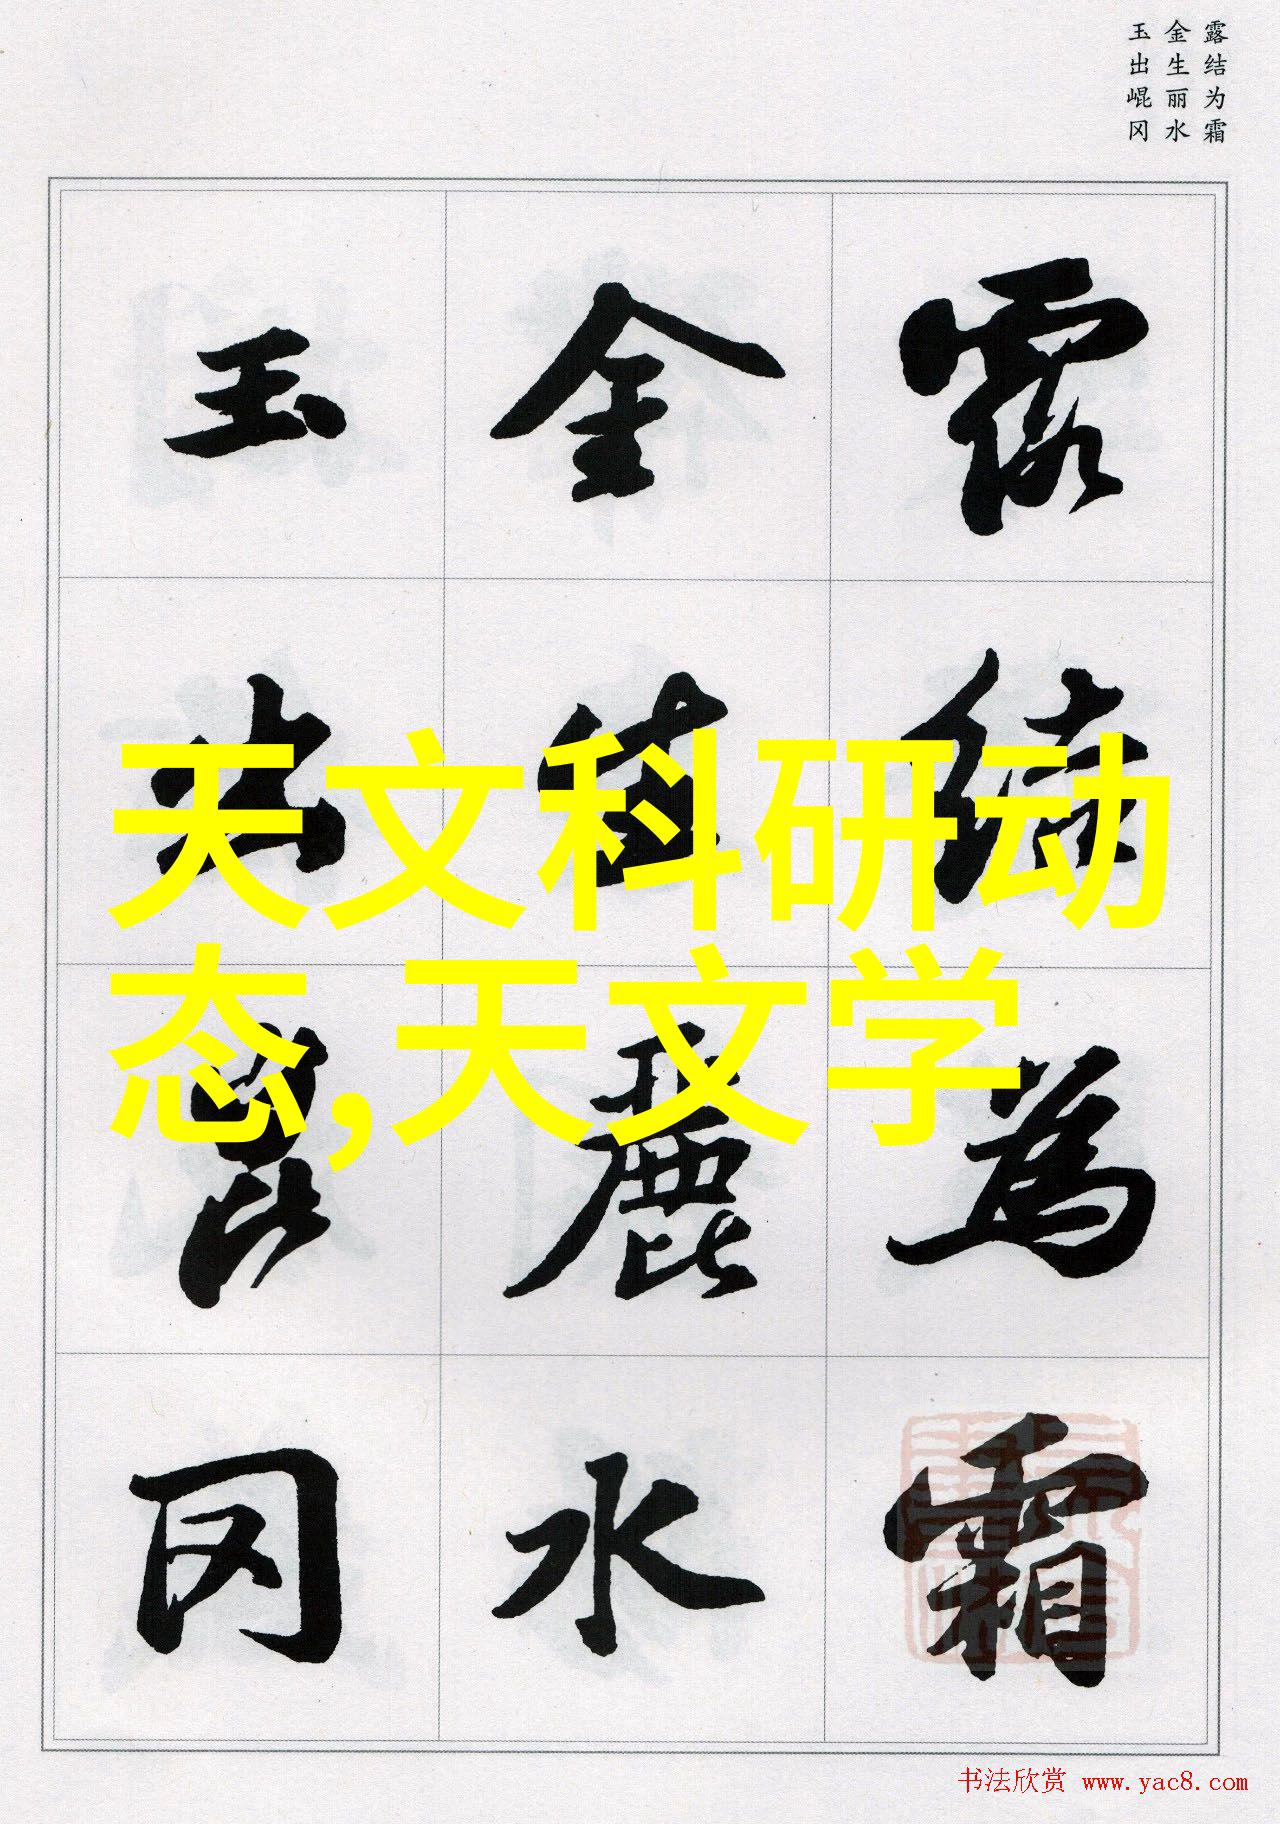 露结为霜
金生丽水
玉出崐冈
露結為霜
金生麗水
玉出崑冈
天文科研动
态,天文学
书法欣赏 www.yac8.com